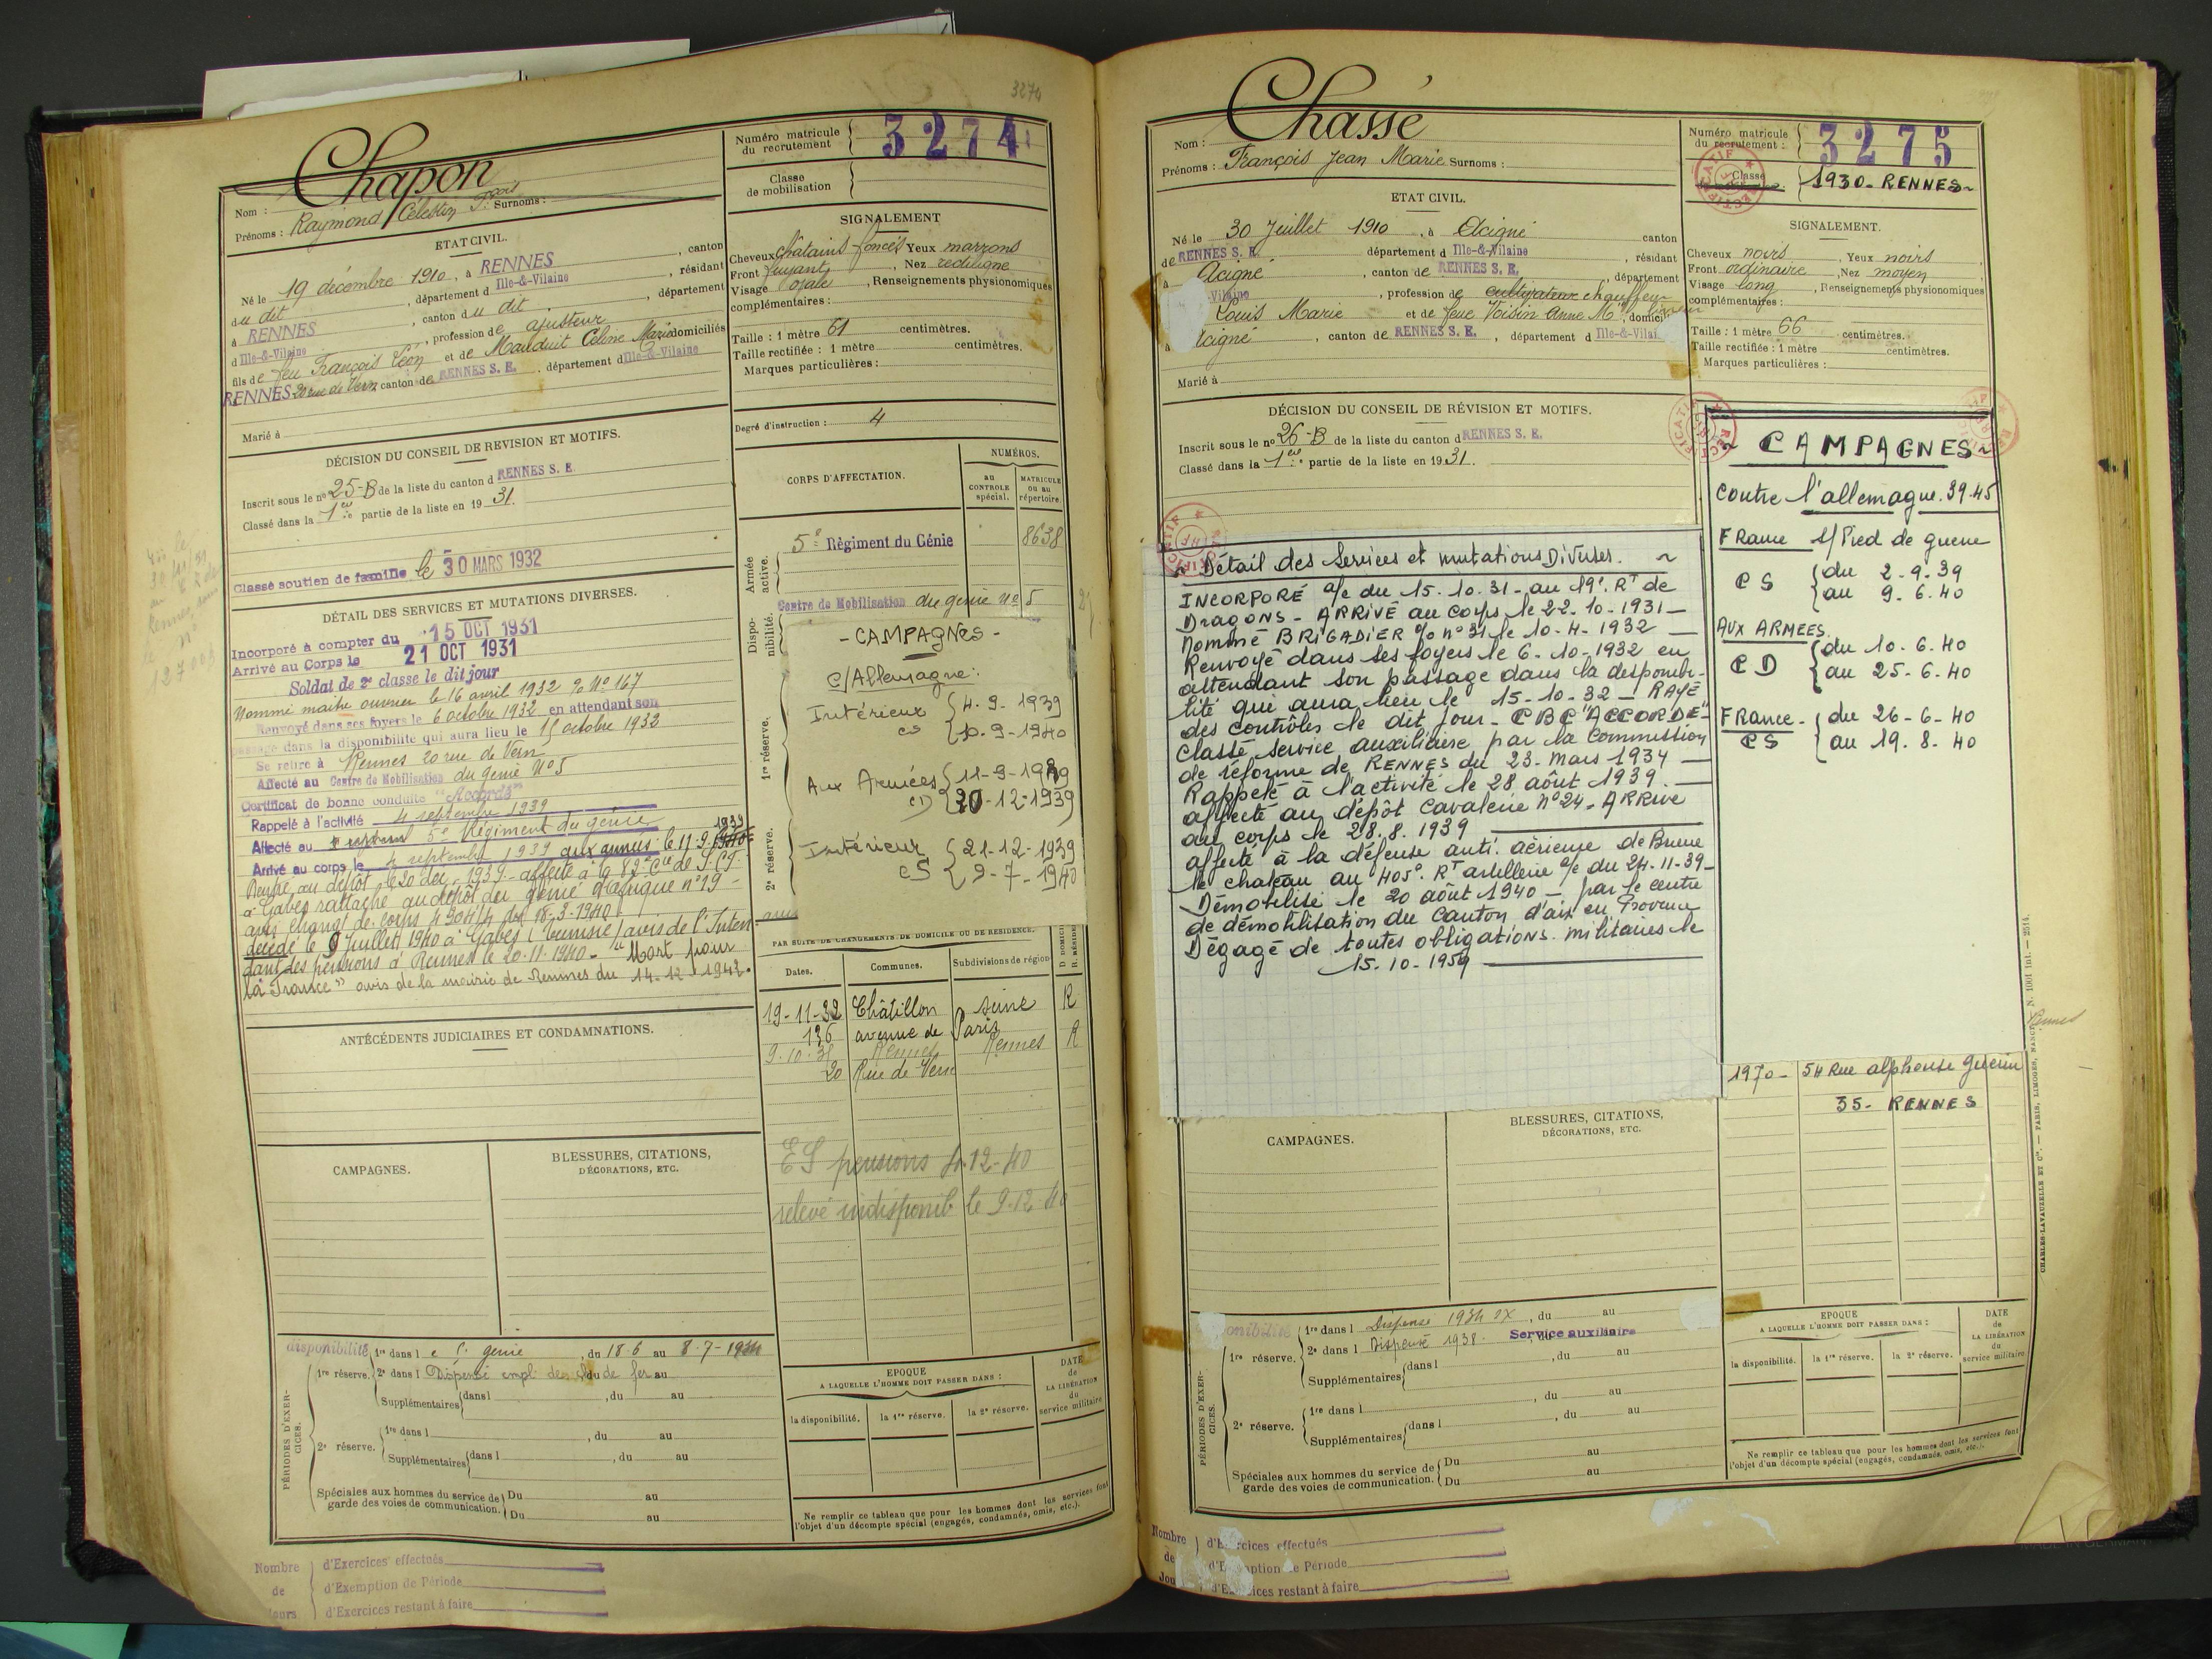 3274
Chapon
Nom :
Prénoms : Raymond Célestin Fçois Surnoms :
ETAT CIVIL.
Né le 19 décembre 1910, à RENNES, canton
du dit, département d Ille-&-Vilaine, résidant
à RENNES, canton du dit, département
d Ille-&-Vilaine, profession de ajusteur
fils de feu François Léon et de Mauduit Céline Marie domiciliés
RENNES 20 rue de Vern canton de RENNES S. E., département d Ille-&-Vilaine
Marié à
DÉCISION DU CONSEIL DE REVISION ET MOTIFS.
Inscrit sous le n° 25-B de la liste du canton d RENNES S. E.
Classé dans la 1ere partie de la liste en 19 31.
Classé soutien de famille le 30 MARS 1932
DÉTAIL DES SERVICES ET MUTATIONS DIVERSES.
Incorporé à compter du 15 OCT 1931
Arrivé au Corps le 21 OCT 1931
Soldat de 2e classe le dit jour
Nommé maitre ouvrier le 16 avril 1932 % No 167
Renvoyé dans ses foyers le 6 octobre 1932 en attendant son
passage dans la disponibilité qui aura lieu le 15 octobre 1932
Se retire à Rennes 20 rue de Vern
Affecté au Centre de Mobilisation du génie No 5
Certificat de bonne conduite "Accordé"
Rappelé à l'activité 4 septembre 1939
Affecté au 5e Régiment du génie
Arrivé au corps le 4 septembre 1939 aux armées le 11-9-1939
Rentré au dépôt le 20 dec. 1939 - affecté à la 82e Cie de
à Gabès rattaché au dépôt du génie d'afrique n°19 -
avis changt de corps n 904/4 du 18-3-1940
décédé le 9 Juillet 1940 à Gabès (Tunisie) avis de l'Inten-
dant des pensions à Rennes le 20-11-1940 - "Mort pour
la France" avis de la mairie de Rennes du 14-12-1942.
ANTÉCÉDENTS JUDICIAIRES ET CONDAMNATIONS.
CAMPAGNES.
BLESSURES, CITATIONS,
DÉCORATIONS, ETC.
PÉRIODES D'EXERCICES.
disponibilité
1re réserve.
1re dans l e 5e génie, du 18-6 au 8-7-1934
2e dans l Dispensé empl. des ch. de fer au
Supplémentaires dans l, du au
2e réserve.
1re dans l, du au
Supplémentaires dans l, du au
Spéciales aux hommes du service de garde des voies de communication. Du au
Du au
Nombre de Jours
d'Exercices effectués
d'Exemption de Période
d'Exercices restant à faire
Numéro matricule du recrutement 3274
Classe de mobilisation
SIGNALEMENT
Cheveux châtains foncés Yeux marrons
Front fuyant, Nez rectiligne
Visage ovale, Renseignements physionomiques
complémentaires :
Taille : 1 mètre 61 centimètres.
Taille rectifiée : 1 mètre centimètres.
Marques particulières :
Degré d'instruction : 4
CORPS D'AFFECTATION.
NUMÉROS.
au CONTROLE spécial.
MATRICULE ou au répertoire.
Armée active.
5e Régiment du Génie 8638
Disponibilité.
Centre de Mobilisation du génie No 5
1re réserve.
2e réserve.
- CAMPAGNES -
C/Allemagne :
Intérieur CS 4-9-1939
10-9-1940
Aux Armées CD 11-9-1939
20-12-1939
Intérieur CS 21-12-1939
9-7-1940
PAR SUITE DE CHANGEMENTS DE DOMICILE OU DE RESIDENCE.
Dates. Communes. Subdivisions de région
19-11-32 Châtillon Seine R
136 avenue de Paris
9-10-35 Rennes Rennes R
20 Rue de Vern
ES pensions 12-40
relevé indisponib le 9-12-40
EPOQUE
A LAQUELLE L'HOMME DOIT PASSER DANS :
la disponibilité. la 1re réserve. la 2e réserve.
DATE de LA LIBÉRATION du service militaire
Ne remplir ce tableau que pour les hommes dont les services font
l'objet d'un décompte spécial (engagés, condamnés, omis, etc.).
Chassé
Nom :
Prénoms : François Jean Marie Surnoms :
ETAT CIVIL.
Né le 30 Juillet 1910, à Acigné canton
de RENNES S. E. département d Ille-&-Vilaine, résidant
à Acigné, canton de RENNES S. E., département
Vilaine, profession de cultivateur chauffeur livreur
Louis Marie et de feue Voisin Anne Mie, domici
à Acigné, canton de RENNES S. E., département d Ille-&-Vilai
Marié à
DÉCISION DU CONSEIL DE RÉVISION ET MOTIFS.
Inscrit sous le n° 26-B de la liste du canton d RENNES S. E.
Classé dans la 1ere partie de la liste en 19 31.
Détail des Services et mutations Diverses.
INCORPORÉ a/c du 15.10.31 - au 19e. RT de
Dragons - ARRIVÉ au corps le 22.10-1931 -
Nommé BRIGADIER % n°31 le 10-4-1932
Renvoyé dans ses foyers le 6-10-1932 en
attendant son passage dans la disponibi-
lité qui aura lieu le 15-10-32 - RAYÉ
des contrôles le dit jour - CBC "ACCORDÉ"
Classé service auxiliaire par la Commission
de réforme de RENNES du 23. Mars 1934
Rappelé à l'activité le 28 août 1939.
affecté au dépôt Cavalerie n°24 - ARRIVÉ
au corps le 28.8.1939
affecté à la défense anti. aérienne de Brienne
le chateau au 405e. RT artillerie a/c du 24-11-39 -
Démobilisé le 20 août 1940 - par le centre
de démobilisation du Canton d'aix en Provence
Dégagé de toutes obligations militaires le
15-10-1959
CAMPAGNES.
BLESSURES, CITATIONS,
DÉCORATIONS, ETC.
PÉRIODES D'EXERCICES.
onibilité
1re réserve.
1re dans l Dispensé 1934 SX, du au
2e dans l Dispensé 1938. Service auxiliaire
Supplémentaires dans l, du au
du au
2e réserve.
1re dans l, du au
Supplémentaires dans l, du au
Spéciales aux hommes du service de garde des voies de communication. Du au
Du au
Nombre de Jou
d'Exercices effectués
d'Exemption de Période
d'Exercices restant à faire
Numéro matricule du recrutement : 3275
Classe 1930 - RENNES
RECTIFICATIF
SIGNALEMENT.
Cheveux noirs, Yeux noirs
Front ordinaire, Nez moyen
Visage long, Renseignements physionomiques
complémentaires :
Taille : 1 mètre 66 centimètres.
Taille rectifiée : 1 mètre centimètres.
Marques particulières :
CAMPAGNES
Contre l'allemagne. 39-45
FRance S/Pied de guerre
CS du 2-9-39
au 9-6-40
AUX ARMEES.
CD du 10-6-40
au 25-6-40
FRance - CS du 26-6-40
au 19-8-40
1970 - 54 Rue alphonse Guerin
35 - RENNES
Rennes
EPOQUE
A LAQUELLE L'HOMME DOIT PASSER DANS :
la disponibilité. la 1re réserve. la 2e réserve.
DATE de LA LIBÉRATION du service militaire
Ne remplir ce tableau que pour les hommes dont les services font
l'objet d'un décompte spécial (engagés, condamnés, omis, etc.).
CHARLES-LAVAUZELLE ET Cie. — PARIS, LIMOGES, NANCY. N. 1001 Int. — 2514.